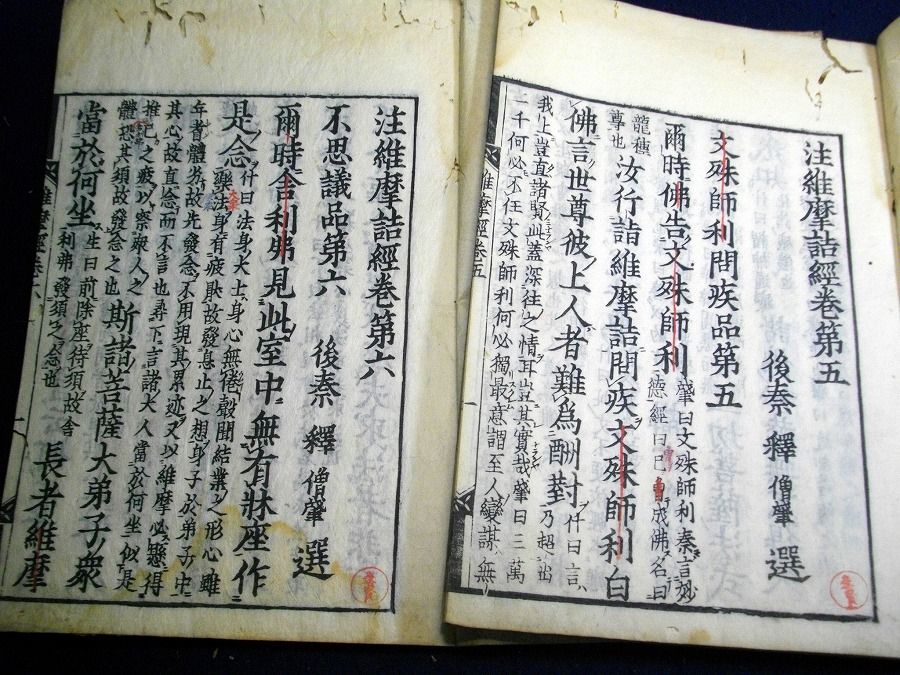 注維摩詰經卷第五
後秦 釋 僧肇 選
文殊師利問疾品第五
爾時佛告文殊師利 肇曰文殊師利秦言妙
德經曰已曾成佛名曰
龍種
尊也 汝行詣維摩詰問疾文殊師利白
佛言世尊彼上人者難為酬對 什曰言
乃超出
我上豈直諸賢此蓋深往之情耳豈其實哉肇曰三萬
二千何必不任文殊師利何必獨最意謂至人變謀無
維摩經卷五
注維摩詰經卷第六
後秦 釋 僧肇 選
不思議品第六
爾時舍利弗見此室中無有牀座作
是念 什曰法身大士身心無倦聲聞結業之形心雖
樂法身有疲厭故發息止之想身子於弟子中
年耆體劣故先發念不用現其累迹又以維摩必懸得
其心故直念而不言也尋下言諸大人當於何坐似是
推己之疲以察衆人之
體恐其須故發念之也 斯諸菩薩大弟子衆
當於何坐 生曰前除座待須故舍
利弗發須之念也 長者維摩
維摩經卷六